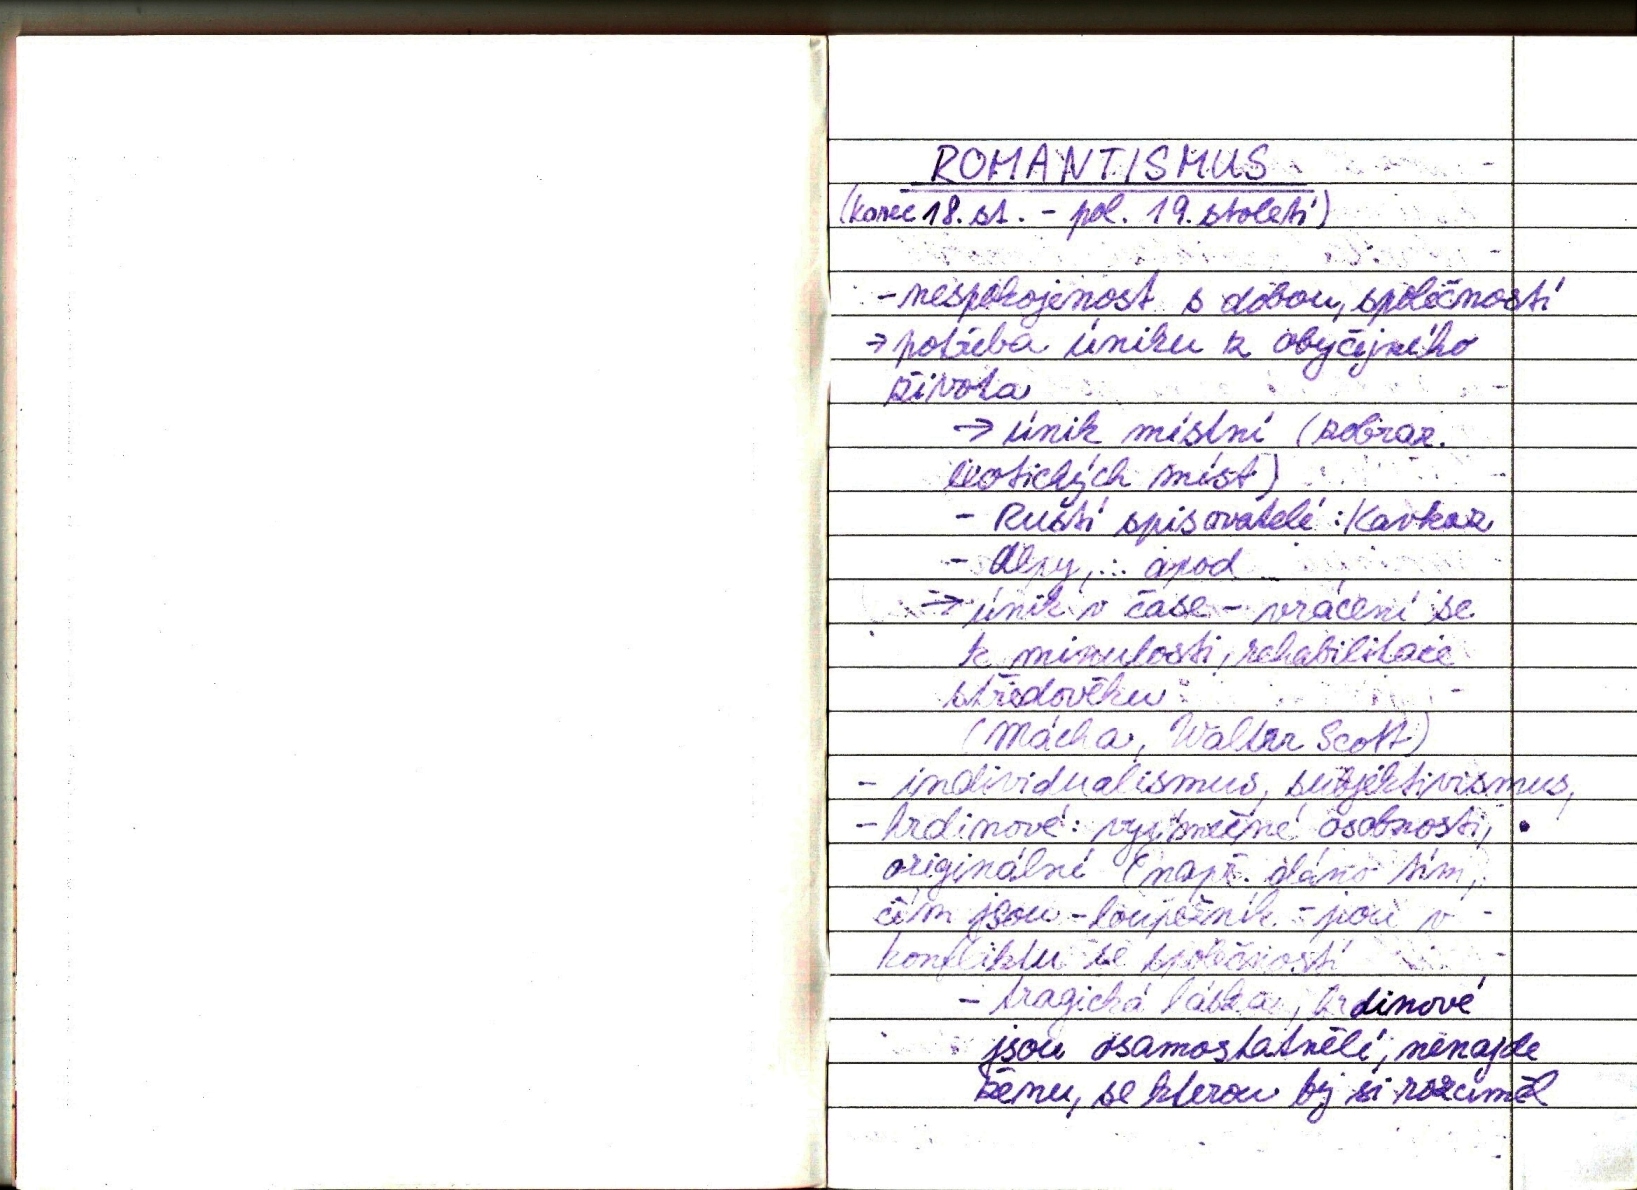 ROMANTISMUS
(konec 18. st. - pol. 19. století)
- nespokojenost s dobou, společností
→ potřeba úniku z obyčejného
života
→ únik místní (zobraz.
exotických míst)
- Ruští spisovatelé : Kavkaz
- Alpy, .. apod
→ únik v čase - vrácení se
k minulosti, rehabilitace
středověku
(Mácha, Walter Scott)
- individualismus, subjektivismus,
- hrdinové: vyjímečné osobnosti,
originální (např. dáno tím,
čím jsou - loupežník - jsou v
konfliktu se společností
- tragická láska, hrdinové
jsou osamostatnělí, nenajde
ženu, se kterou by si rozuměl